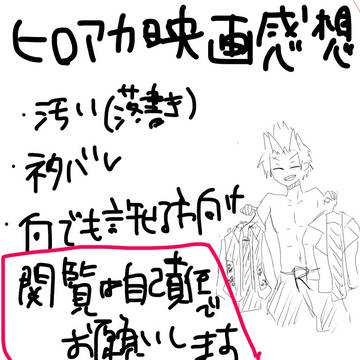 ヒロアカ映画感想
・汚い(落書き)
・ネタバレ
・何でも許せる方向け
閲覧は自己責任で
お願いします